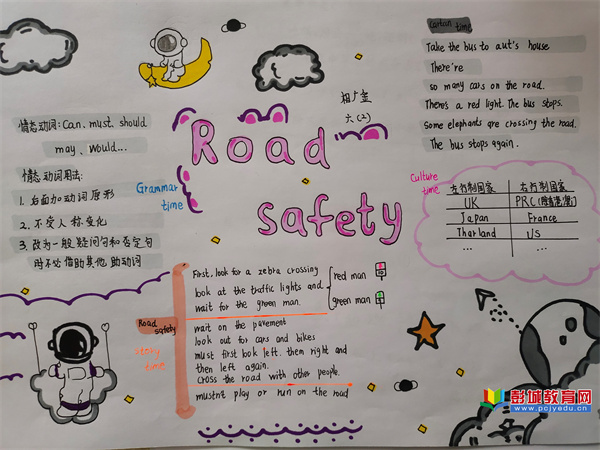 Cartoon time
Take the bus to aut's house
There're
so many cars on the road.
There's a red light. The bus stops.
Some elephants are crossing the road.
The bus stops again.
Road
safety
六(2)
情态动词: Can, must, should
may, would...
情态动词用法:
1. 后面加动词原形
2. 不受人称变化
3. 改为一般疑问句和否定句
时不必借助其他助动词
Grammar
time
Culture
time
左行制国家 右行制国家
UK PRC(除香港/澳门)
Japan France
Thailand US
... ...
Road
safety
story
time
First, look for a zebra crossing
look at the traffic lights and
wait for the green man.
red man
green man
wait on the pavement
look out for cars and bikes
must first look left, then right and
then left again.
cross the road with other people.
mustn't play or run on the road
彭城教育网
www.pcjyedu.cn